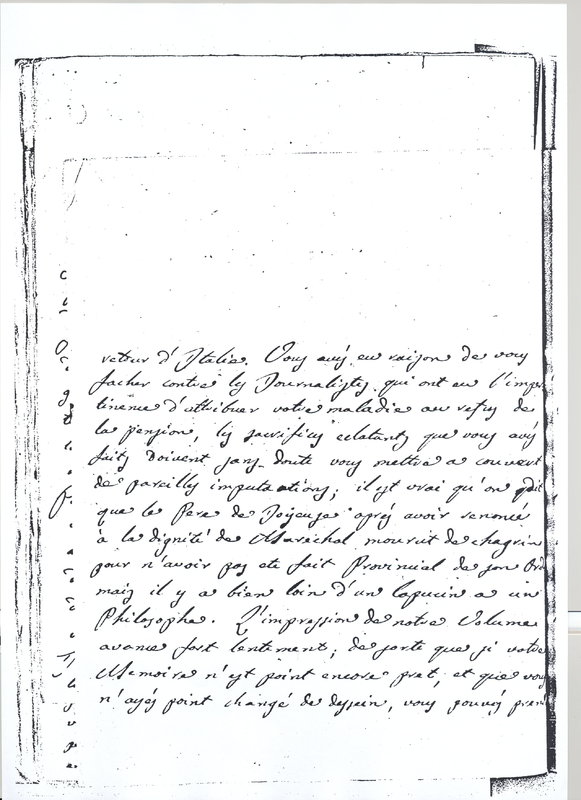 retour d'Italie. Vous avés eu raison de vous
facher contre les Journalistes qui ont eu l'imper
tinence d'attribuer votre maladie au refus de
la pension, les sacrifices eclatants que vous avés
faits doivent sans-doute vous mettre a couvert
de pareilles imputations; il est vrai qu'on dit
que le Pere de Joyeuse aprés avoir renoncé
à la dignité de Maréchal mourut de chagrin
pour n'avoir pas eté fait Provincial de son Ord
mais il y a bien loin d'un Capucin a un
Philosophe. L'impression de notre Volume
avance fort lentement; de sorte que si votre
Memoire n'est point encore pret, et que vous
n'ayés point changé de dessein, vous pouvés pren